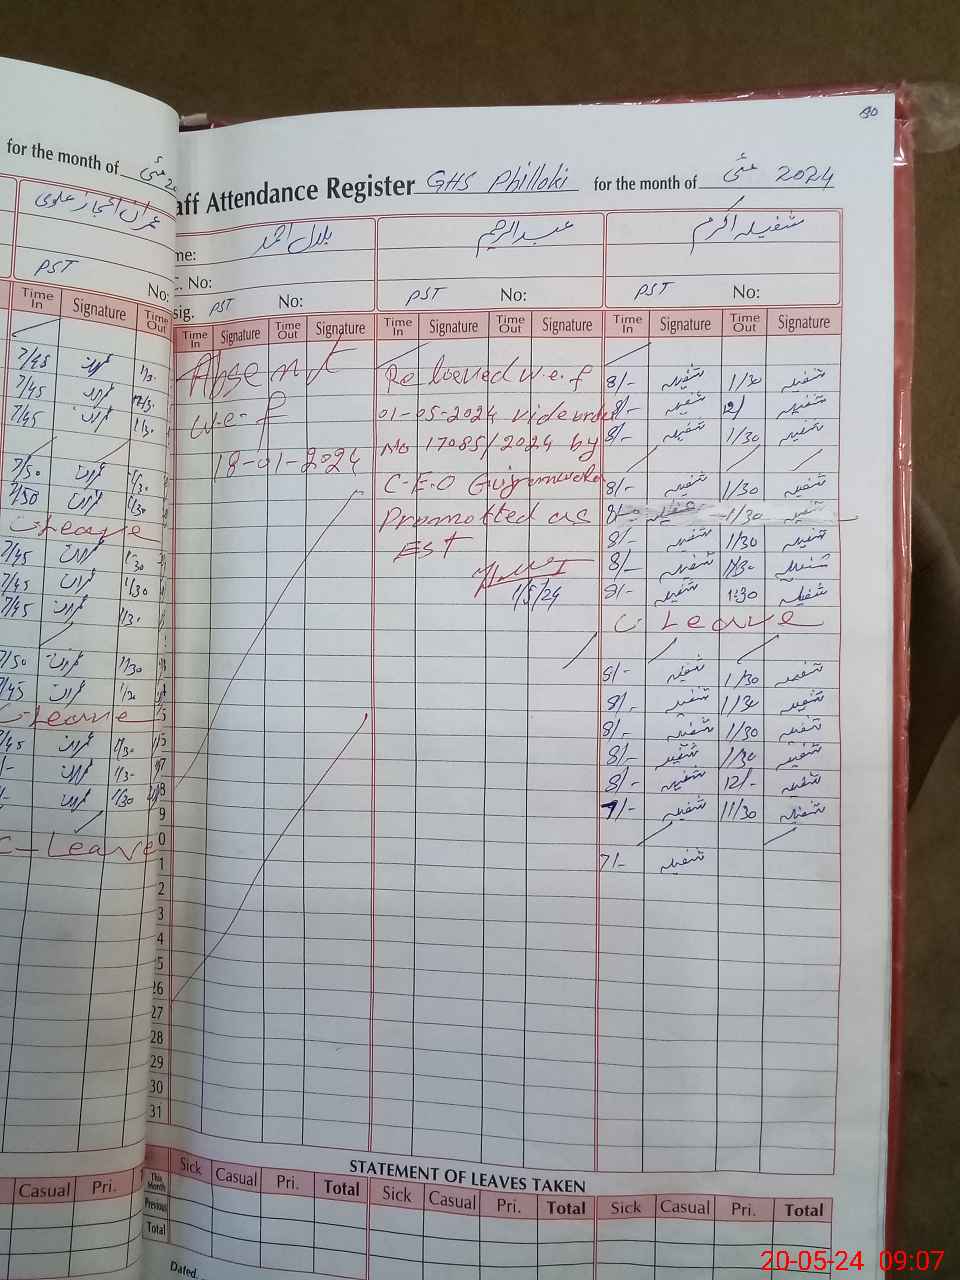 for the month of
aff Attendance Register GHS Philloki for the month of مئی 2024
30
me: بلال احمد عبدالرحیم شفیلہ اکرم
No:
PST No:
sig. PST No: PST No: PST No:
Time In Signature Time Out
Time In Signature Time Out Signature Time In Signature Time Out Signature Time In Signature Time Out Signature
Absent
w.e.f
18-01-2024
Relieved w.e.f
01-05-2024 vide order
No 17085/2024 by
C.E.O Gujranwala
Promotted as
EST
1/5/24
8/- شفیلہ 1/30 شفیلہ
8/- شفیلہ 12/ شفیلہ
8/- شفیلہ 1/30 شفیلہ
8/- شفیلہ 1/30 شفیلہ
8/- شفیلہ 1/30 شفیلہ
8/- شفیلہ 1/30 شفیلہ
8/- شفیلہ 1/30 شفیلہ
8/- شفیلہ 1:30 شفیلہ
C-Leave
8/- شفیلہ 1/30 شفیلہ
8/- شفیلہ 1/30 شفیلہ
8/- شفیلہ 1/30 شفیلہ
8/- شفیلہ 1/30 شفیلہ
8/- شفیلہ 12/- شفیلہ
7/- شفیلہ 11/30 شفیلہ
7/- شفیلہ
7/45
7/45
7/45
7/50
7/50
C-Leave
7/45 1/30
7/45 1/30
7/45 1/30
7/50 1/30
7/45 1/30
C-Leave
7/45 1/30
1/30
1/30
C-Leave
8
9
0
1
2
3
4
5
26
27
28
29
30
31
STATEMENT OF LEAVES TAKEN
Casual Pri.
Sick Casual Pri. Total Sick Casual Pri. Total Sick Casual Pri. Total
This Month
Previous
Total
Dated.
20-05-24 09:07